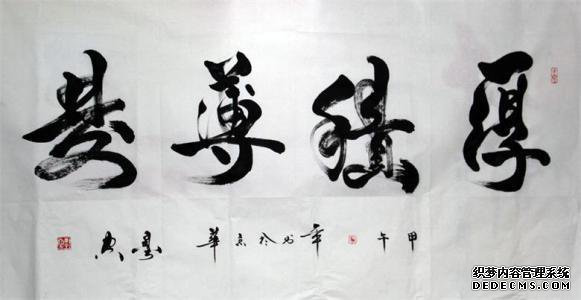 厚積薄發
甲午年书於京華
织梦内容管理系统
DEDECMS.COM